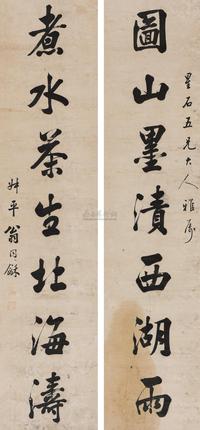 星石五兄大人雅屬
圖山墨漬西湖雨
煮水茶生北海濤
叔平翁同龢